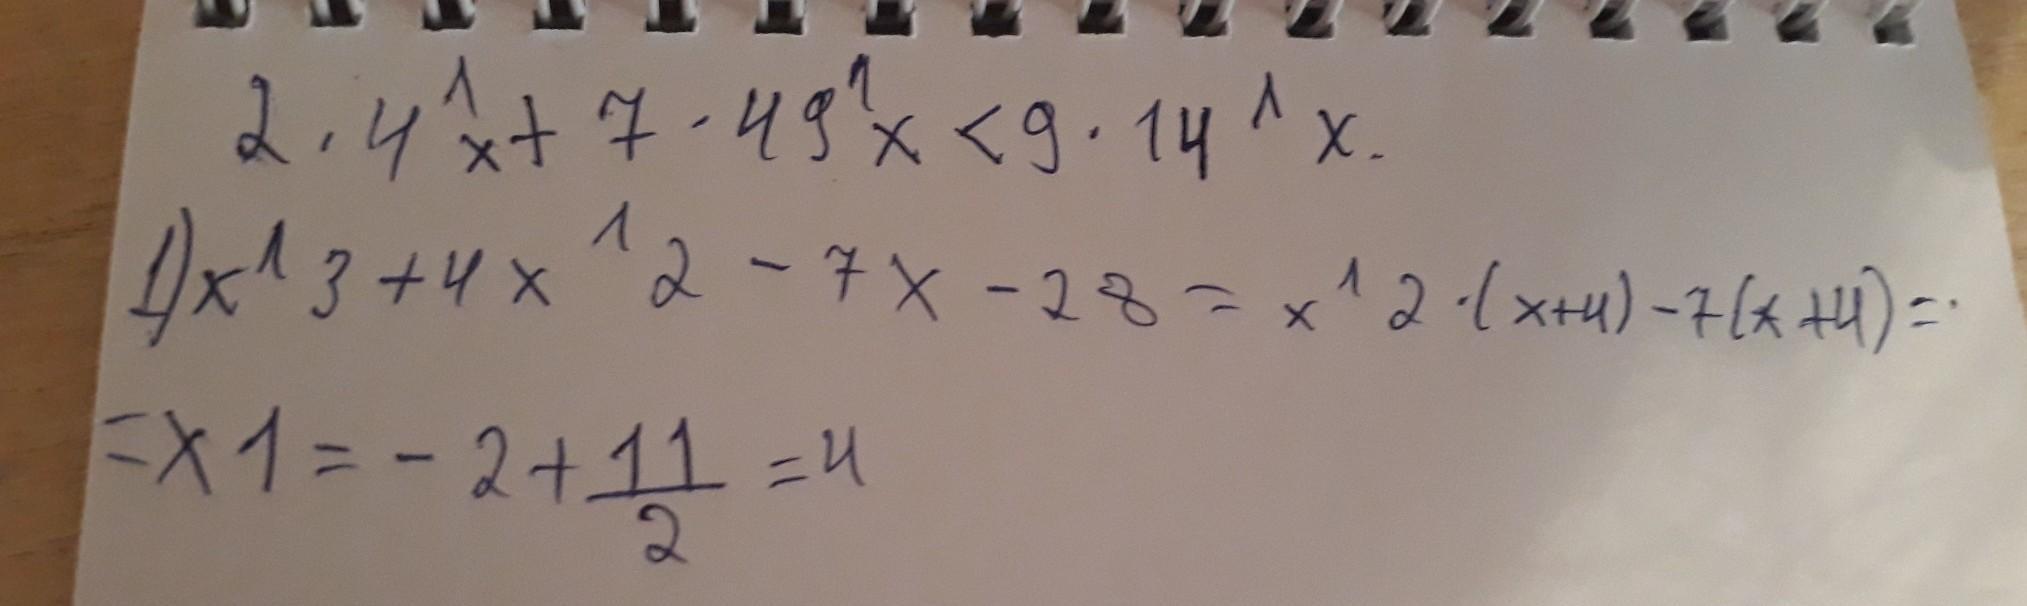 2 · 4^x + 7 · 49^x < 9 · 14^x.
1) x^3 + 4x^2 - 7x - 28 = x^2 · (x+4) - 7(x+4) =
= x1 = - 2 + 11/2 = 4